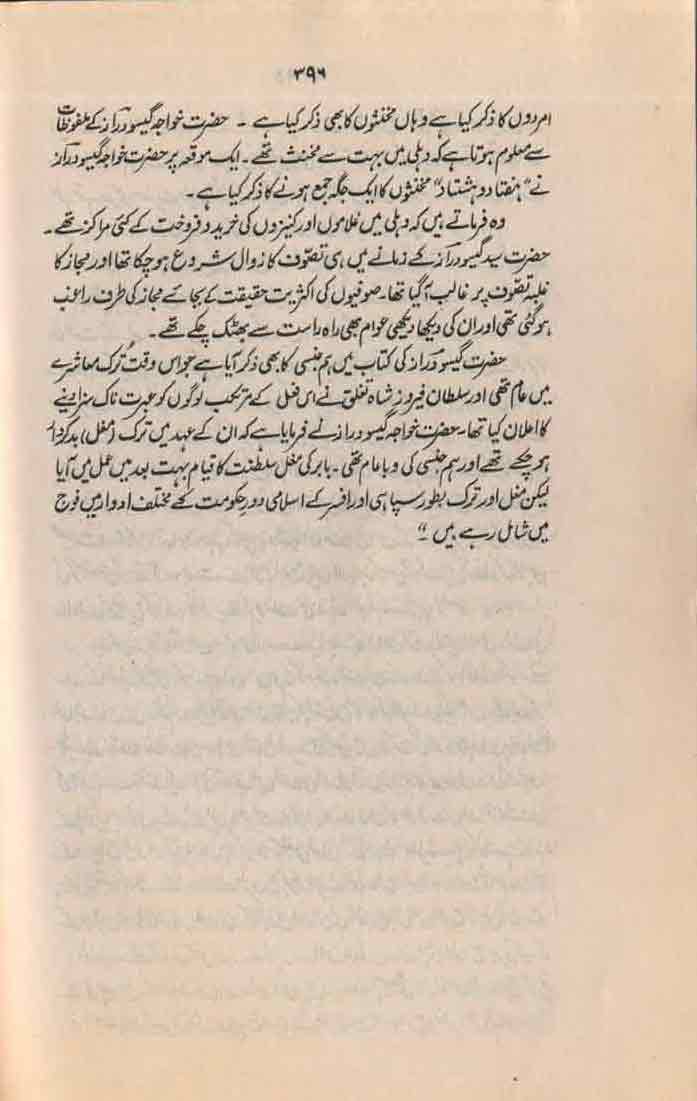 ۳۹۶
امردوں کا ذکر کیا ہے وہاں مخنثوں کا بھی ذکر کیا ہے ۔ حضرت خواجہ گیسو دراز کے ملفوظات
سے معلوم ہوتا ہے کہ دہلی میں بہت سے مخنث تھے ۔ ایک موقعہ پر حضرت خواجہ گیسو دراز
نے "ہفتاد و ہشتاد" مخنثوں کا ایک جگہ جمع ہونے کا ذکر کیا ہے ۔
وہ فرماتے ہیں کہ دہلی میں غلاموں اور کنیزوں کی خرید و فروخت کے کئی مراکز تھے ۔
حضرت سید گیسو دراز کے زمانے میں ہی تصوّف کا زوال شروع ہو چکا تھا اور مجاز کا
غلبہ تصوّف پر غالب آگیا تھا ۔ صوفیوں کی اکثریت حقیقت کے بجائے مجاز کی طرف راغب
ہو گئی تھی اور ان کی دیکھا دیکھی عوام بھی راہ راست سے بھٹک چکے تھے ۔
حضرت گیسو دراز کی کتاب میں ہم جنسی کا بھی ذکر آیا ہے جو اس وقت ترک معاشرے
میں عام تھی اور سلطان فیروز شاہ تغلق نے اس فعل کے مرتکب لوگوں کو عبرت ناک سزا دینے
کا اعلان کیا تھا ۔ حضرت خواجہ گیسو دراز نے فرمایا ہے کہ ان کے عہد میں ترک (مغل) بدکردار
ہو چکے تھے اور ہم جنسی کی وبا عام تھی ۔ بابر کی مغل سلطنت کا قیام بہت بعد میں عمل میں آیا
لیکن مغل اور ترک بطور سپاہی اور افسر کے اسلامی دورِ حکومت کے مختلف ادوار میں فوج
میں شامل رہے ہیں ۔"